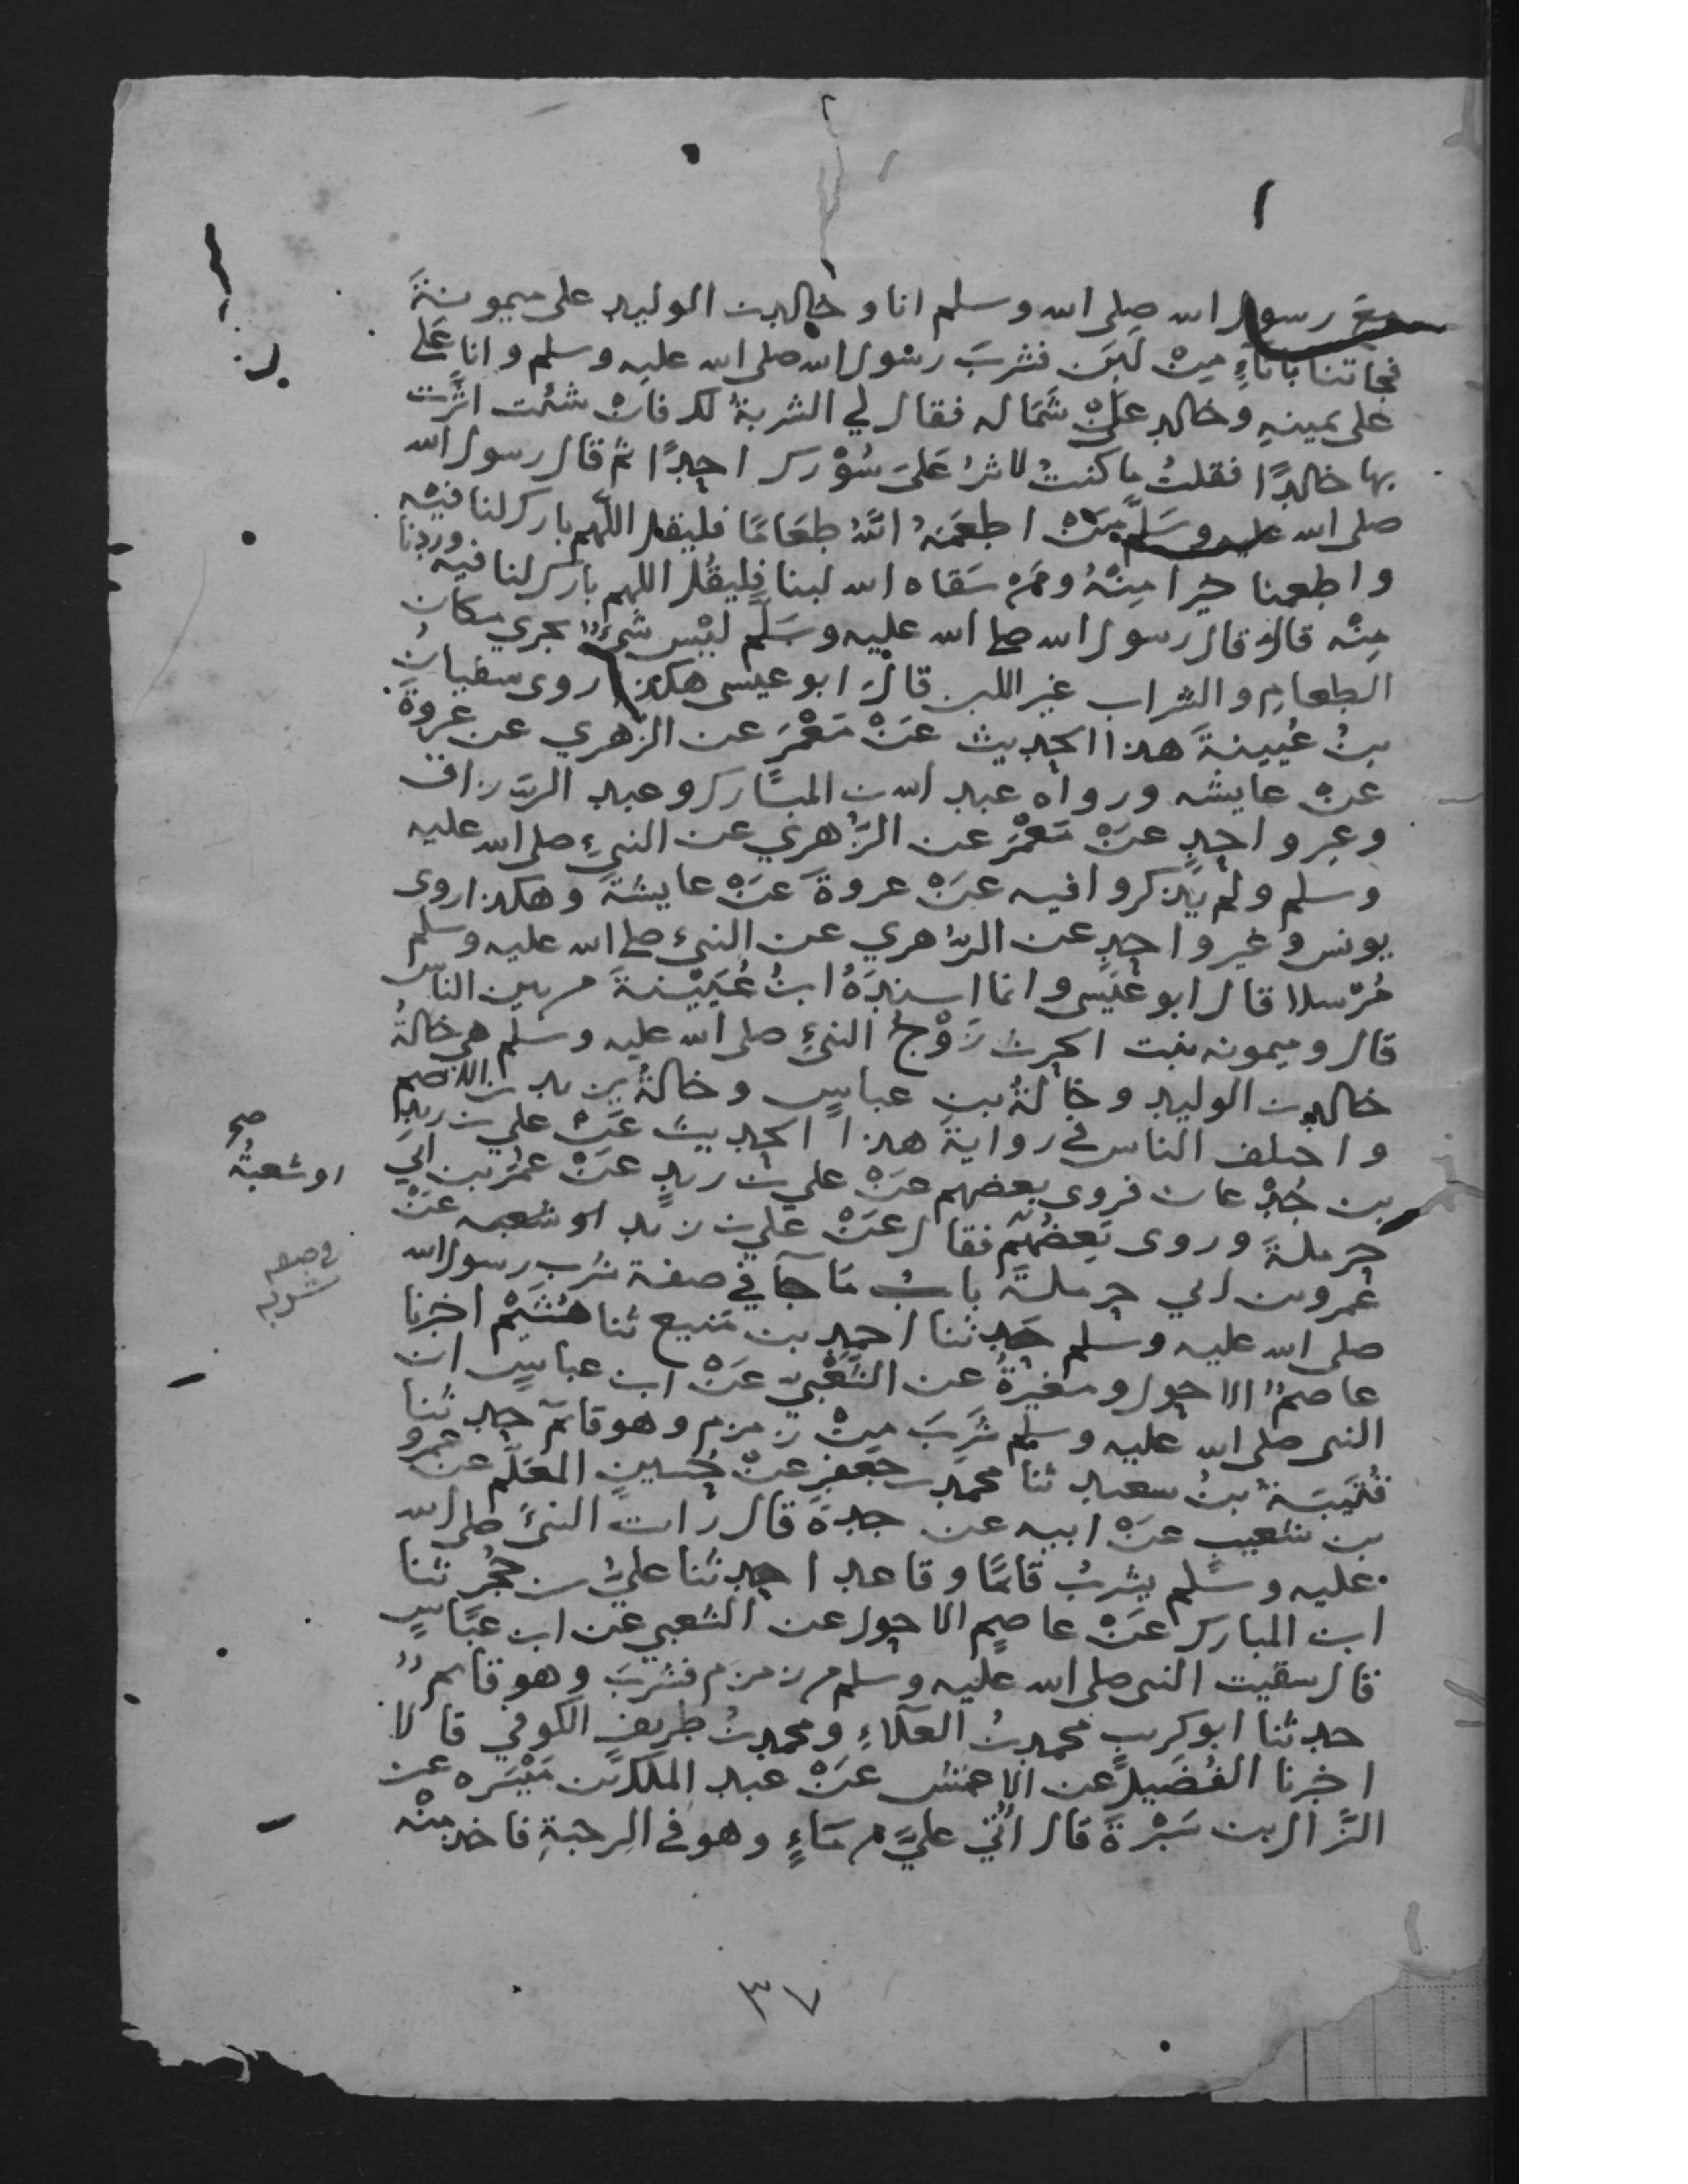 مع رسول الله صلى الله وسلم انا وخالد بن الوليد على ميمونةَ
فجاتنا باناءٍ مِنْ لبَن فشربَ رسُول الله صلى الله عليه وسلم وانا عَلى
على يمينهِ وخالد عَلىْ شَمَاله فقال لي الشربةُ لك فانْ شئت اثرت
بها خالدًا فقلتُ ما كنتُ لاثرُ عَلىَ سُوْرك احدًا ثم قال رسول الله
صلى الله عليه وسَلم مَنْ اطعَمَهُ اللهُ طعَامًا فليقل اللّهم بارك لنا فيْه
واطعمنا خيرا مِنْهُ ومَن سَقاه الله لبنا فليقُل اللهم بارك لنا فيْه وزدنا
مِنْه قال قال رسول الله صلى الله عليه وسَلّم ليْس شئٌ يجزي مكان
الطعامِ والشراب غير اللبن قالَ ابو عيسى هكذا روى سفيانُ
بنُ عُيينةَ هذا الحديث عَنْ مَعْمَر عن الزهري عن عروةَ
عنْ عايشه ورواه عبد الله بن المبَارك وعبد الرزاق
وغير واحدٍ عنْ مَعْمَر عن الزُهري عن النبيِ صلى الله عليه
وسلم ولم يذكروا فيه عَنْ عروةَ عَنْ عايشةَ وهكذا روى
يونس وغير واحدٍ عن الزُهري عن النبيِ صلى الله عليه وسلم
مُرْسلا قال ابو عيسى وانما اسندَهُ ابنُ عُيَيْنةَ من بين الناس
قال وميمونه بنت الحرث زَوْجُ النبيِ صلى الله عليه وسلم هي خالةُ
خالد بن الوليد وخالةُ بن عباسٍ وخالةُ يزيد بن الاصم
واختلف الناس في روايةِ هذا الحديث عَنْ علي بن زيدِ
بن جُدْعان فروى بعضهم عَنْ علي بن زيدٍ عَنْ عمَر بن ابي
حرملةَ وروى بَعضُهُم فقال عَنْ علي بن زيد او شعبه عَنْ
عمرو بن ابي حرملةَ بابُ مَا جآ في صفة شرب رسول الله
صلى الله عليه وسلم حَدثنا احمد بن مَنيع ثنا هُشَيْم اخبرنا
عاصمٌ الاحول ومغيرةُ عن الشَعْبيّ عَنْ ابن عباسٍ ان
النبى صلى الله عليه وسلم شرَبَ مِنْ زمزم وهو قائم حدثنا
قُتَيبَةُ بنُ سعيد ثنا محمد بن جعفرٍ عنْ حُسينٍ المعَلّم عن عمرو
بن شعيبٍ عنْ ابيه عن جدهَ قال رات النبيَ صلى الله
عليه وسلم يشربُ قائمًا وقاعدا حدثنا عليُ بن حُجْرٍ ثنا
ابن المبارك عَنْ عاصمٍ الاحول عن الشعبي عن ابن عبَّاسٍ
قال سقيت النبى صلى الله عليه وسلم من زمزم فشرَبَ وهو قائمٌ
حدثنا ابو كريبٍ محمد بنُ العَلاءِ ومحمد بنُ طريفٍ الكوفي قالا
اخبرنا الفُضَيل عن الاعمش عَنْ عبد الملك بن مَيْسَره عن
النزال بن سَبْرةَ قال اُتي عليَّ من مَاءٍ وهو في الرحبةِ فاخذ مِنْه
صح
او شعبةُ
في صفه
شربه
٣٧